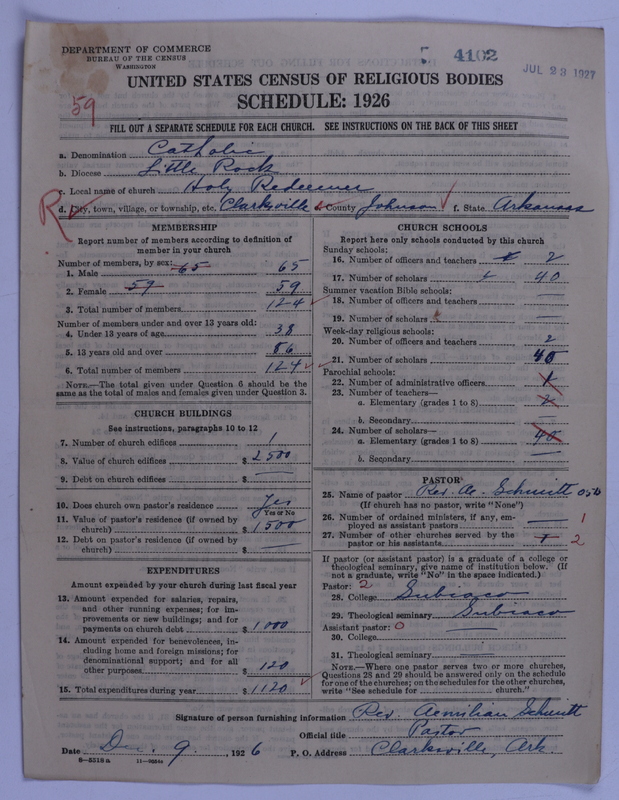 DEPARTMENT OF COMMERCE
BUREAU OF THE CENSUS
WASHINGTON
4102
JUL 23 1927
UNITED STATES CENSUS OF RELIGIOUS BODIES
SCHEDULE: 1926
59
FILL OUT A SEPARATE SCHEDULE FOR EACH CHURCH. SEE INSTRUCTIONS ON THE BACK OF THIS SHEET
a. Denomination Catholic
b. Diocese Little Rock
c. Local name of church Holy Redeemer
R
d. City, town, village, or township, etc. Clarksville e. County Johnson f. State Arkansas
MEMBERSHIP
Report number of members according to definition of
member in your church
Number of members, by sex:
1. Male 65 65
2. Female 59 59
3. Total number of members 124
Number of members under and over 13 years old:
4. Under 13 years of age 38
5. 13 years old and over 86
6. Total number of members 124
NOTE.—The total given under Question 6 should be the
same as the total of males and females given under Question 3.
CHURCH BUILDINGS
See instructions, paragraphs 10 to 12
7. Number of church edifices 1
8. Value of church edifices $ 2500
9. Debt on church edifices $ —
10. Does church own pastor's residence? Yes
Yes or No
11. Value of pastor's residence (if owned by
church) $ 1500
12. Debt on pastor's residence (if owned by
church) $ —
EXPENDITURES
Amount expended by your church during last fiscal year
13. Amount expended for salaries, repairs,
and other running expenses; for im-
provements or new buildings; and for
payments on church debt $ 1000
14. Amount expended for benevolences, in-
cluding home and foreign missions; for
denominational support; and for all
other purposes $ 120
15. Total expenditures during year $ 1120
CHURCH SCHOOLS
Report here only schools conducted by this church
Sunday schools:
16. Number of officers and teachers 2
17. Number of scholars 40
Summer vacation Bible schools:
18. Number of officers and teachers —
19. Number of scholars —
Week-day religious schools:
20. Number of officers and teachers 2
21. Number of scholars 40
Parochial schools:
22. Number of administrative officers
23. Number of teachers—
a. Elementary (grades 1 to 8)
b. Secondary —
24. Number of scholars—
a. Elementary (grades 1 to 8) 40
b. Secondary —
PASTOR
25. Name of pastor Rev. Ae. Schmitt
(If church has no pastor, write "None")
26. Number of ordained ministers, if any, em-
ployed as assistant pastors — 1
27. Number of other churches served by the
pastor or his assistants 2
If pastor (or assistant pastor) is a graduate of a college or
theological seminary, give name of institution below. (If
not a graduate, write "No" in the space indicated.)
Pastor: 2
28. College Subiaco
29. Theological seminary Subiaco
Assistant pastor: 0
30. College —
31. Theological seminary —
NOTE.—Where one pastor serves two or more churches,
Questions 28 and 29 should be answered only on the schedule
for one of the churches; on the schedules for the other churches,
write "See schedule for ______ church."
Signature of person furnishing information Rev. Aemilian Schmitt
Official title Pastor
Date Dec. 9, 1926 P. O. Address Clarksville, Ark.
8—5518a